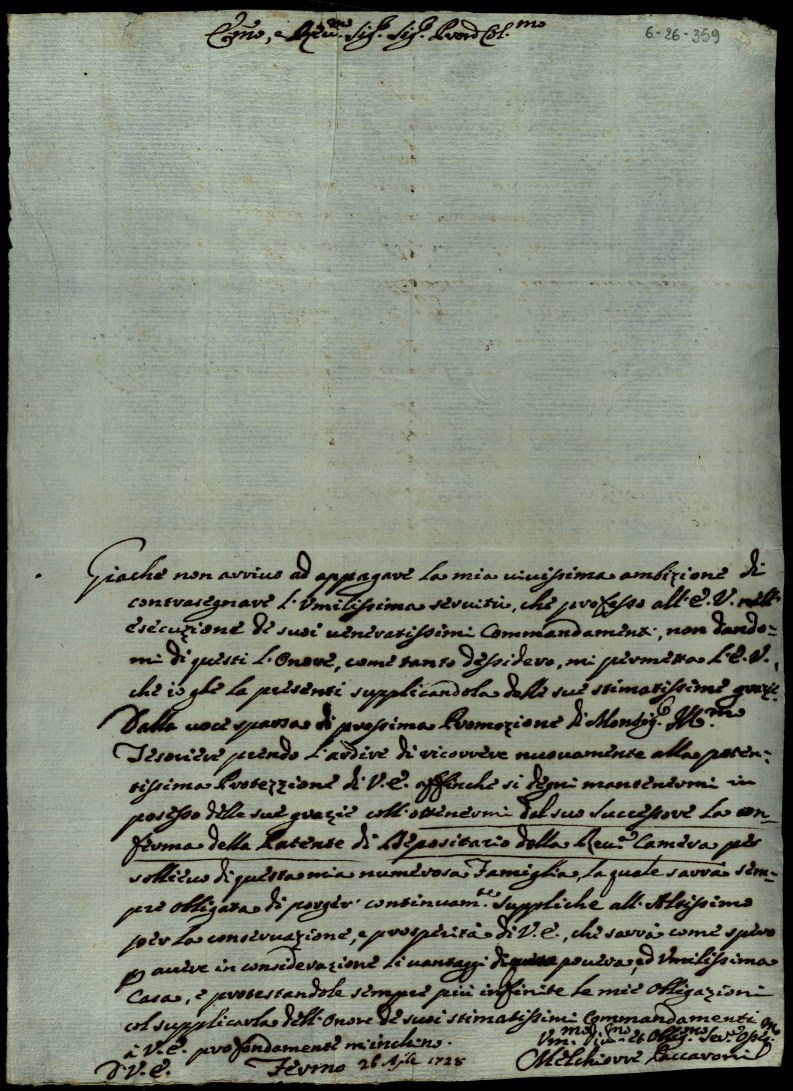 Em̃o, e Reu.mo Sig.r Sig.r Pron Col.mo
6-26-359
Giache non arriuo ad appagare la mia viuissima ambizione di
contrasegnare l'Vmilissima seruitù, che professo all'E.V. nell'
esecuzione de suoi veneratissimi Commandamenti, non dando=
mi di questi l'Onore, come tanto dessidero, mi permetta l'E.V.,
che io gle la presenti supplicandola delle sue stimatissime grazie.
Dalla voce sparsa di prossima Promozione di Monsig.re Ill.mo
Tesoriere prendo l'ardire di ricorrere nuouamente alla poten=
tissima Protezzione di V.E. affinche si degni mantenermi in
possesso delle sue grazie coll'ottenermi dal suo Successore la con=
ferma della Patente di Depositario della Reu.a Camera per
sollieuo di questa mia numerosa Famiglia, la quale sarrà sem=
pre obligata di porger' continuam.te suppliche all'Altissimo
per la conseruazione, e prosperità di V.E., che sarrà come spero
p auere in considerazione li vantaggi di pouera, ed Vmilissima
Casa, e protestandole sempre più infinite le mie Obligazioni
col supplicarla dell'Onore de suoi stimatissimi Commandamenti
à V.E. profondamente m'inchino.
D'V.E.
Fermo 26 Aple 1728
Vm.mo Diu.mo et Oblig.mo Ser.e
Melchiorre Paccaroni